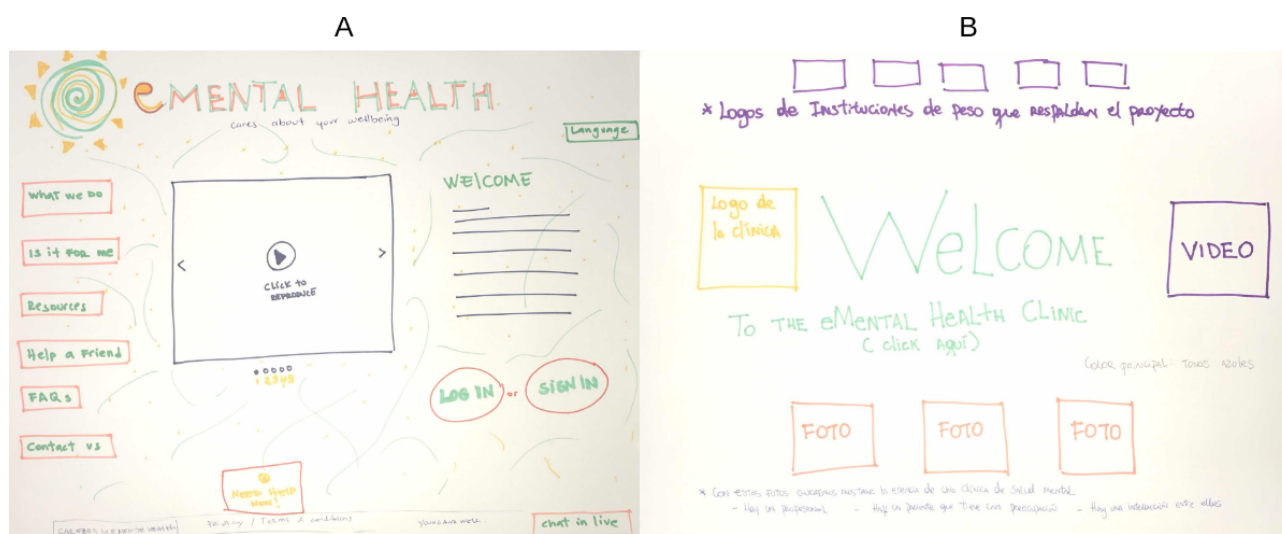 A
B
eMENTAL HEALTH
cares about your wellbeing
Language
What we Do
Is it for me
Resources
Help a Friend
FAQs
Contact us
CLICK to
REPRODUCE
1 2 3 4 5
WELCOME
LOG IN or SIGN IN
Need Help
Now!
Privacy / Terms & conditions
chat in live
* Logos de Instituciones de peso que respaldan el proyecto
Logo de
la clínica
WELCOME
TO THE eMENTAL HEALTH CLINIC
(click AQUÍ)
VIDEO
Color principal: tonos azules
FOTO
FOTO
FOTO
* Con estas fotos queremos mostrar la esencia de una clínica de salud mental
- Hay un profesional - Hay un paciente que tiene una preocupación - Hay una interacción entre ellos